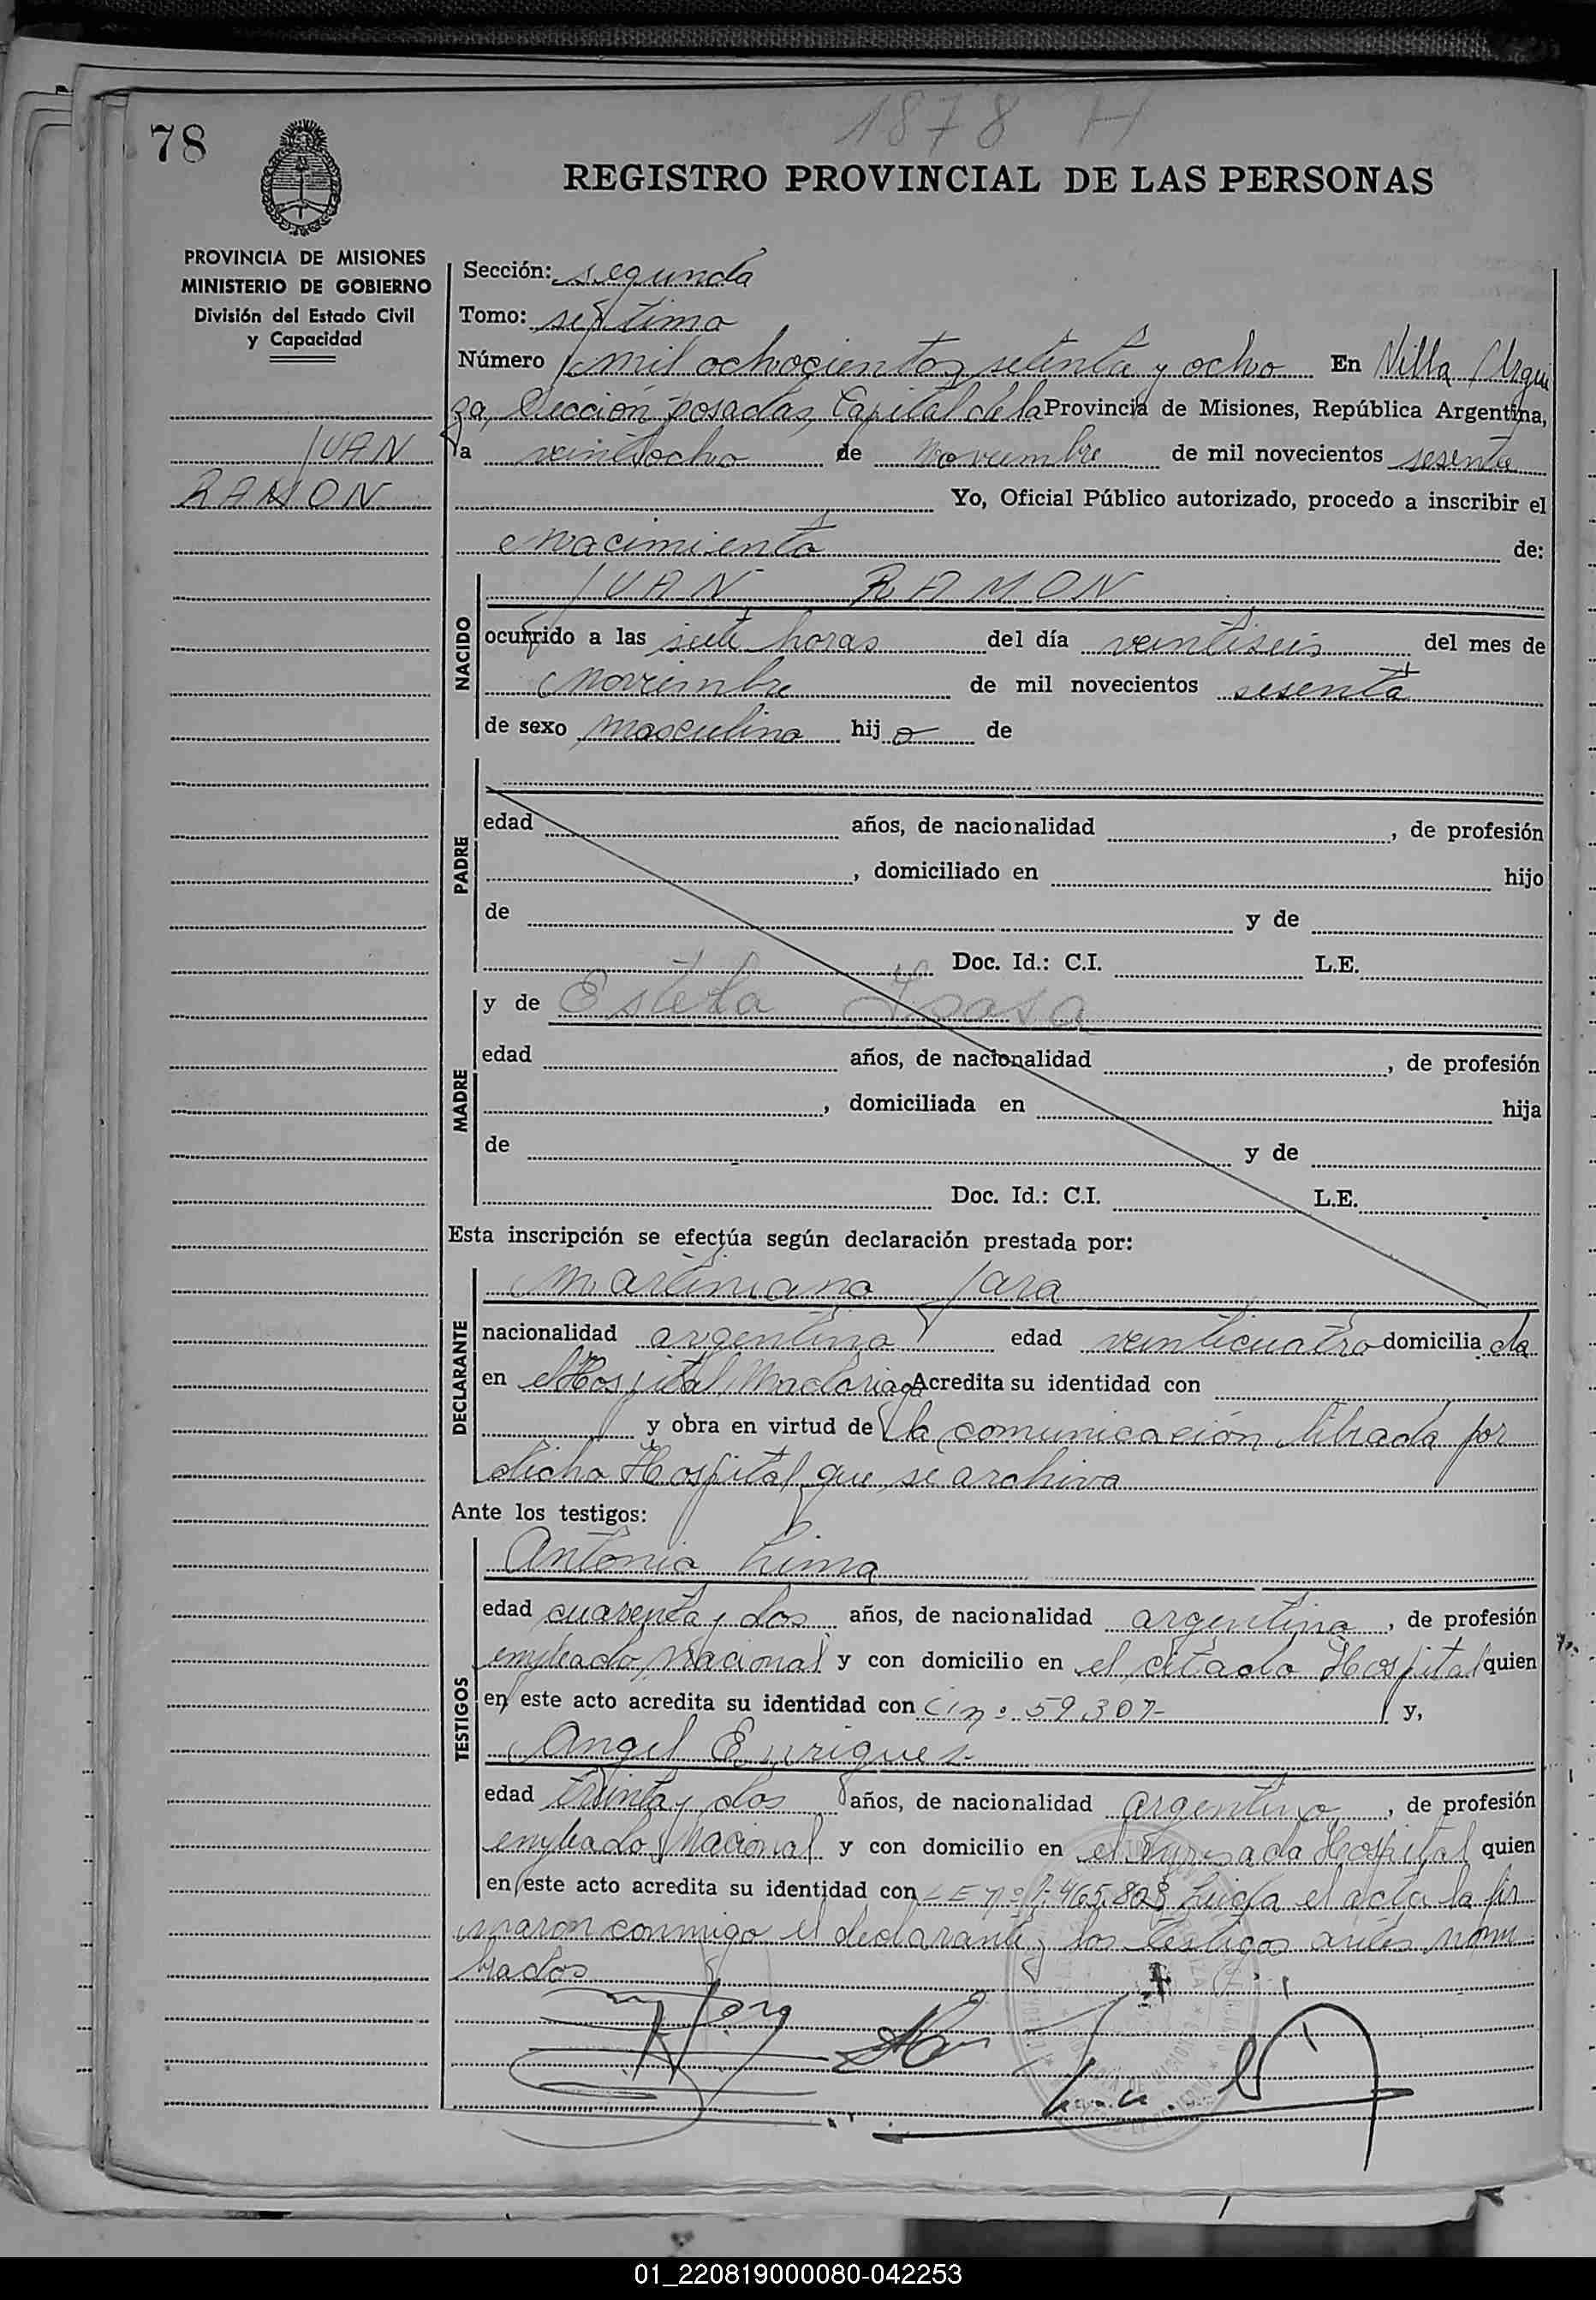 1878 H
78
REGISTRO PROVINCIAL DE LAS PERSONAS
PROVINCIA DE MISIONES
MINISTERIO DE GOBIERNO
División del Estado Civil
y Capacidad
JUAN
RAMON
Sección: segunda
Tomo: séptimo
Número mil ochocientos setenta y ocho En Villa Urqui
za, Sección Posadas, Capital de la Provincia de Misiones, República Argentina,
a veintiocho de noviembre de mil novecientos sesenta
Yo, Oficial Público autorizado, procedo a inscribir el
nacimiento de:
NACIDO
JUAN RAMON
ocurrido a las siete horas del día veintiseis del mes de
noviembre de mil novecientos sesenta
de sexo masculino hijo de
PADRE
edad años, de nacionalidad , de profesión
, domiciliado en hijo
de y de
Doc. Id.: C.I. L.E.
MADRE
y de Estela
edad años, de nacionalidad , de profesión
, domiciliada en hija
de y de
Doc. Id.: C.I. L.E.
Esta inscripción se efectúa según declaración prestada por:
DECLARANTE
Martiniano Jara
nacionalidad argentino edad veinticuatro domicilia do
en el Hospital Madariaga Acredita su identidad con
y obra en virtud de la comunicación librada por
dicho Hospital que se archiva
Ante los testigos:
TESTIGOS
Antonio Lima
edad cuarenta y dos años, de nacionalidad argentino, de profesión
empleado nacional y con domicilio en el citado Hospital quien
en este acto acredita su identidad con CI nº 59.307- y,
Angel Enriquez
edad treinta y dos años, de nacionalidad argentino, de profesión
empleado nacional y con domicilio en el Hospital quien
en este acto acredita su identidad con LE nº 7.465.828 Leida el acta la fir
maron conmigo el declarante y los testigos antes nom
brados
01_220819000080-042253